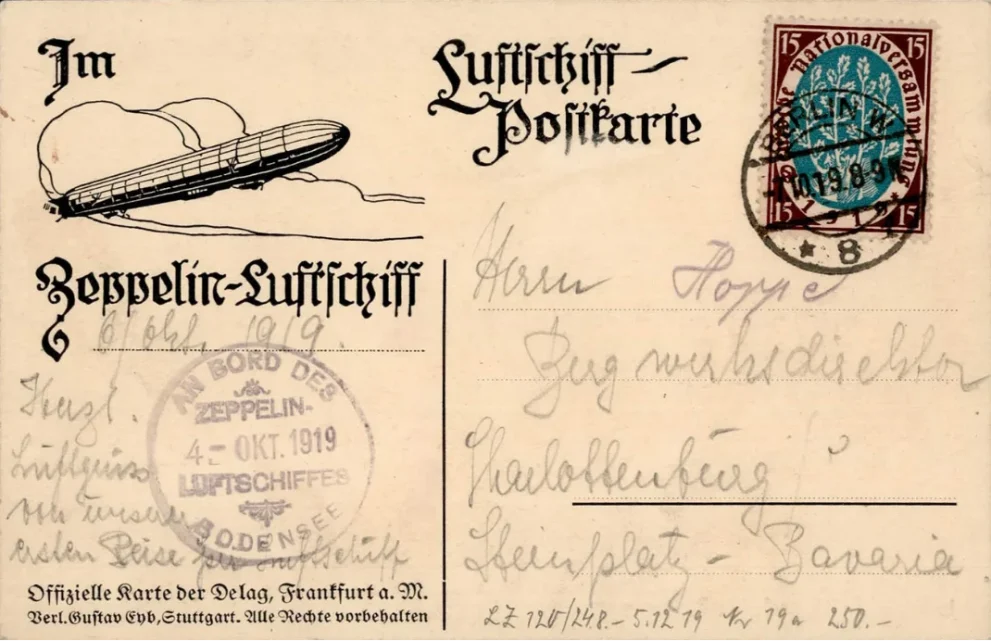 Im
Luftschiff-
Postkarte
Zeppelin-Luftschiff
15 15
Deutsche Nationalversammlung
1919
15 15
BERLIN W
10.19.8-9
* 8
6/Okt. 1919.
AN BORD DES
ZEPPELIN-
4- OKT. 1919
LUFTSCHIFFES
BODENSEE
Herzl.
Luftgruss
von unserer
ersten Reise per Luftschiff
Herrn Hoppe
Bergwerksdirektor
Charlottenburg
Steinplatz - Bavaria
Offizielle Karte der Delag, Frankfurt a. M.
Verl. Gustav Eyb, Stuttgart. Alle Rechte vorbehalten
LZ 120/248.- 5.12.19 Nr 19a 250.-